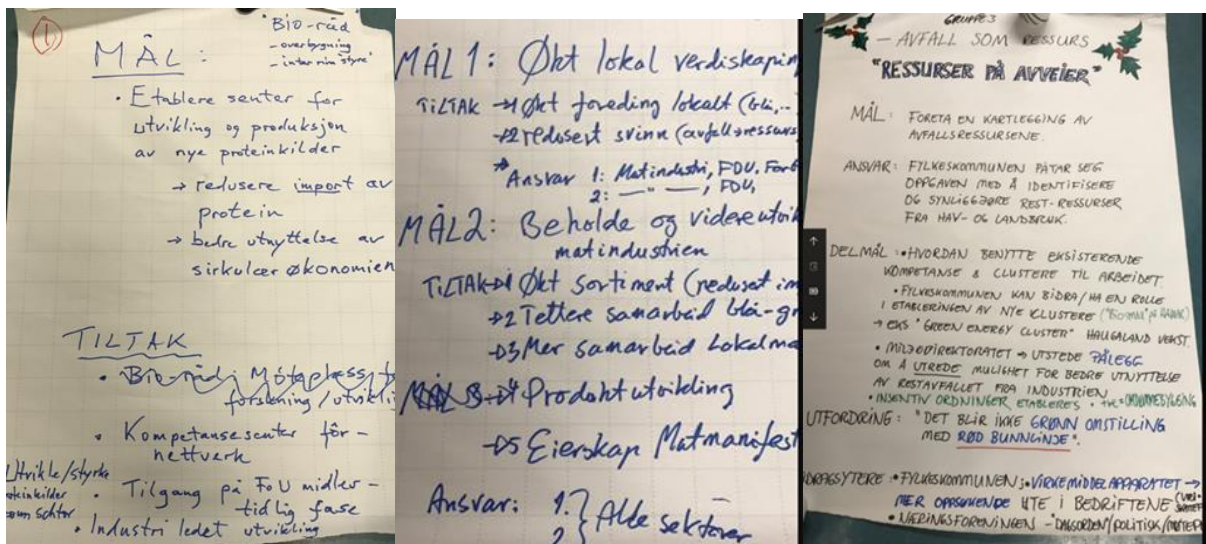 1
"Bio-råd
- overbygning
- interrimstyre"
MÅL:
• Etablere senter for
utvikling og produksjon
av nye proteinkilder
→ redusere import av
protein
→ bedre utnyttelse av
sirkulær økonomien
TILTAK
• Bio-råd: Møteplass
forskning/utvikli
• Kompetansesenter fôr-
nettverk
Utvikle/styrke
• Tilgang på FoU midler-
tidlig fase
• Industri ledet utvikling
MÅL 1: Økt lokal verdiskapin
TILTAK →1 Økt foredling lokalt (blå,..
→2 redusert svinn (avfall→ressurs
→ Ansvar 1: Matindustri, FOU,
2: —"—, FOU,
MÅL 2: Beholde og videreutvik
matindustrien
TILTAK →1 Økt sortiment (redusert im
→2 Tettere samarbeid blå-gr
→3 Mer samarbeid Lokalma
→4 Produktutvikling
→5 Eierskap Matmanifest
Ansvar: 1.
2 } Alle sektorer
GRUPPE 3
— AVFALL SOM RESSURS
"RESSURSER PÅ AVVEIER"
MÅL: FORETA EN KARTLEGGING AV
AVFALLSRESSURSENE.
ANSVAR: FYLKESKOMMUNEN PÅTAR SEG
OPPGAVEN MED Å IDENTIFISERE
OG SYNLIGGJØRE REST-RESSURSER
FRA HAV- OG LANDBRUK.
DELMÅL: • HVORDAN BENYTTE EKSISTERENDE
KOMPETANSE & CLUSTERE TIL ARBEIDET.
• FYLKESKOMMUNEN KAN BIDRA/HA EN ROLLE
I ETABLERINGEN AV NYE KLUSTERE
→ EKS "GREEN ENERGY CLUSTER" HAUGALAND VEKST.
• MILJØDIREKTORATET → UTSTEDE PÅLEGG
OM Å UTREDE MULIGHET FOR BEDRE UTNYTTELSE
AV RESTAVFALLET FRA INDUSTRIEN.
• INSENTIV ORDNINGER ETABLERES.
UTFORDRING: "DET BLIR IKKE GRØNN OMSTILLING
MED RØD BUNNLINJE".
DRAGSYTERE: • FYLKESKOMMUNEN; • VIRKEMIDDELAPPARATET →
MER OPPSØKENDE UTE I BEDRIFTENE
• NÆRINGSFORENINGEN - "DAGSORDEN/POLITISK/MØTEP